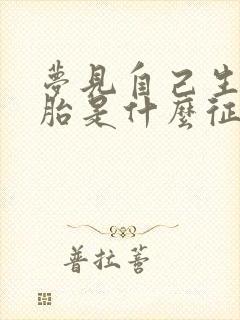 夢見自己生
胎是什麼征
普拉薈